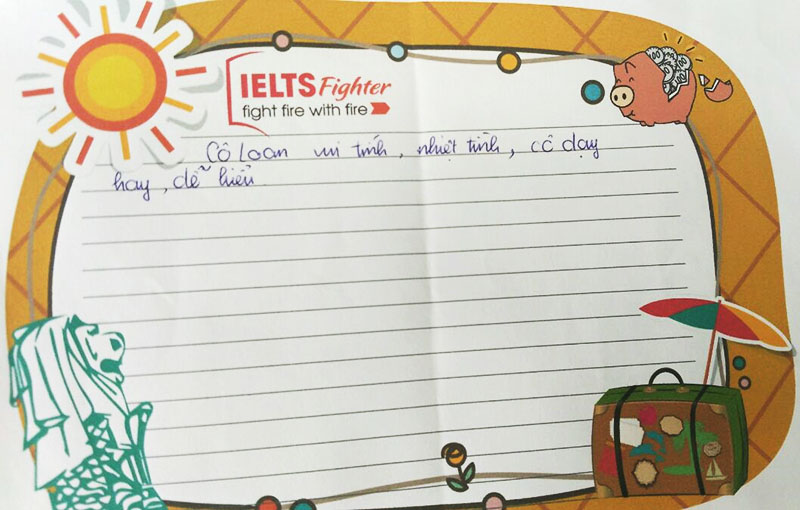 IELTS Fighter
fight fire with fire
Cô Loan vui tính, nhiệt tình, cô dạy
hay, dễ hiểu.